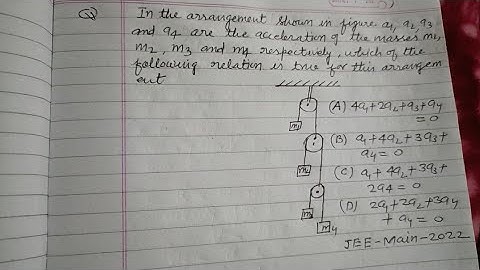 Q In the arrangement shown in figure a1, a2, a3
and a4 are the acceleration of the masses m1,
m2, m3 and m4 respectively, which of the
following relation is true for this arrangem
ent
(A) 4a1+2a2+a3+a4
=0
(B) a1+4a2+3a3+
a4=0
(C) a1+4a2+3a3+
2a4=0
(D) 2a1+2a2+3a4
+a4=0
JEE-Main-2022
m1
m2
m3
m4